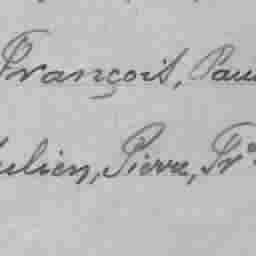 François, Paul
Julien, Pierre, Frs